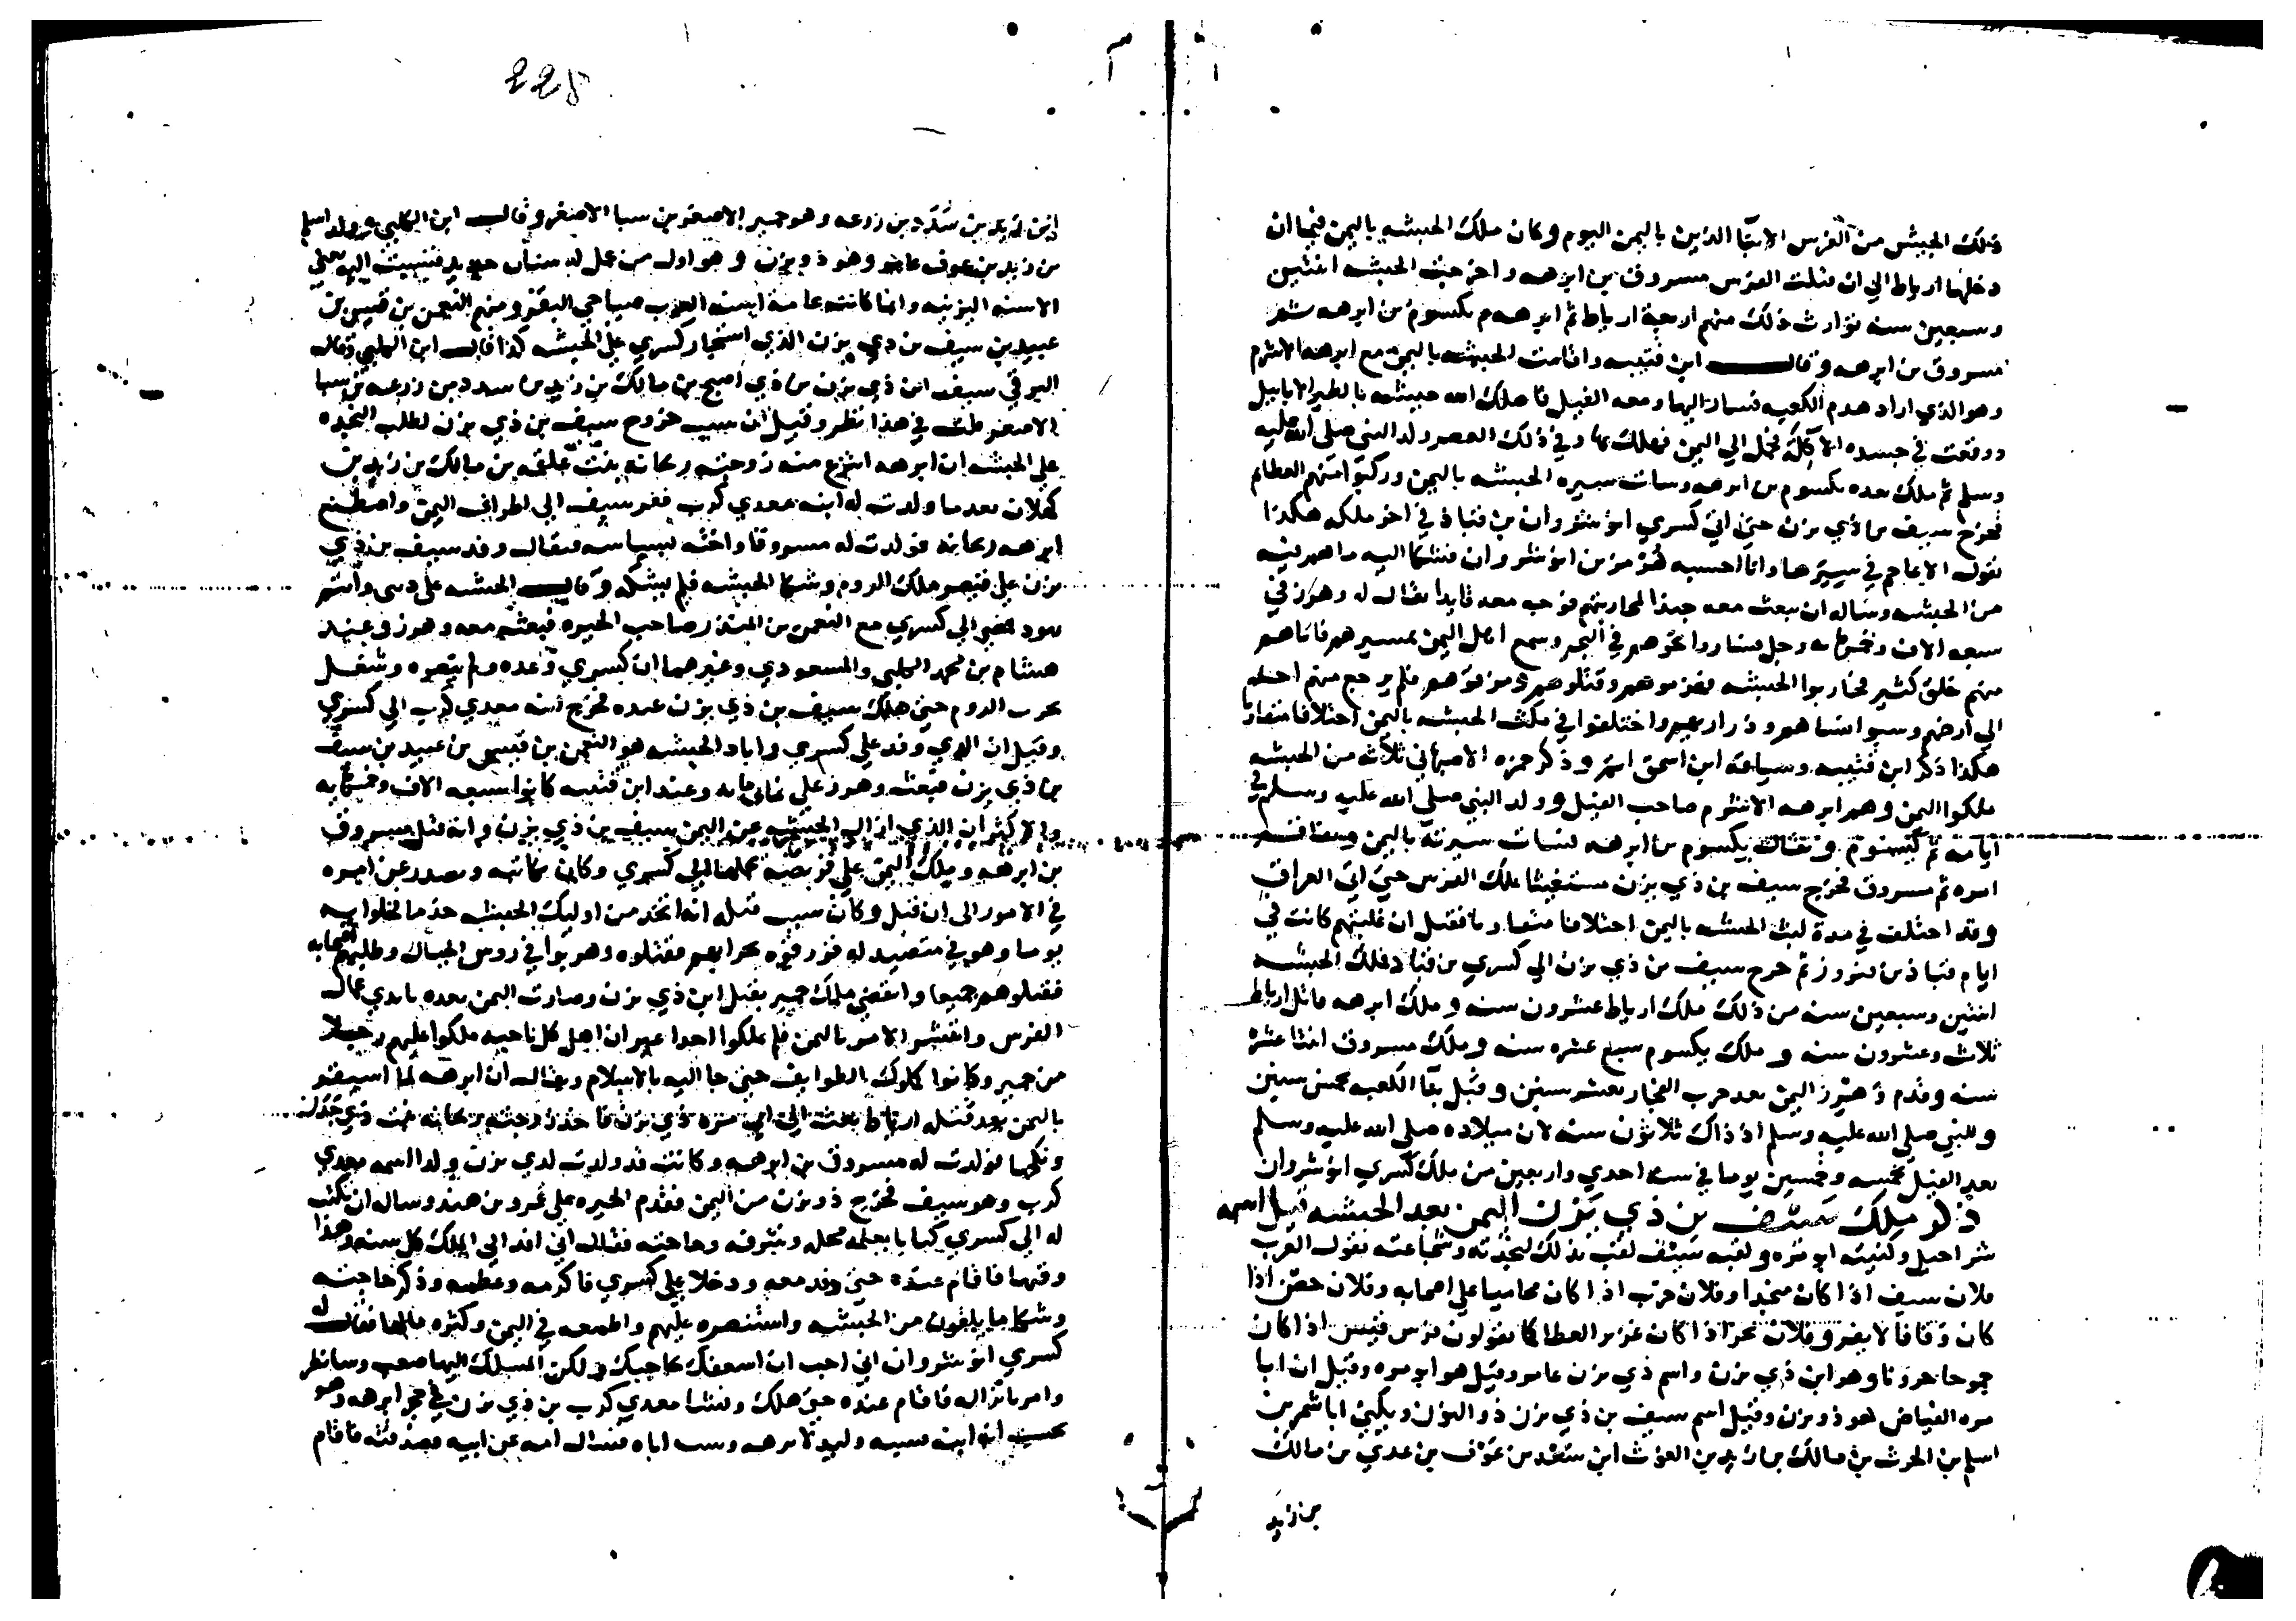 ذلك الجيش من الفرس الابنا الذين باليمن اليوم وكان ملك الحبشه باليمن فيما ان
دخلها ارياط الي ان قتلت الفرس مسروق بن ابرهه واخرجت الحبشه اثنتين
وسبعين سنه توارث ذلك منهم اربعة ارياط ثم ابرهه ثم يكسوم بن ابرهه ثم
مسروق بن ابرهه وقال ابن قتيبه واقامت الحبشه باليمن مع ابرهه الاشرم
وهو الذي اراد هدم الكعبه فسار اليها ومعه الفيل فاهلك الله جيشه بالطير الابابيل
ووقعت في جسده الآكلة فحمل الي اليمن فهلك بها وفي ذلك العصر ولد النبي صلي الله عليه
وسلم ثم ملك بعده يكسوم بن ابرهه وسات سيره الحبشه باليمن وركبوا منهم العظائم
فخرج سيف بن ذي يزن حتي اتي كسري انوشروان بن قباذ في اخر ملكه هكذا
تقول الاعاجم في سيرها وانا احسبه هُرمز بن انوشروان فشكا اليه ما هم فيه
من الحبشه وساله ان يبعث معه جندا لمحاربتهم فوجه معه قايدا يقال له وهرز في
سبعه الاف وخمسمايه رجل فساروا نحوهم في البحر وسمع اهل اليمن بمسيرهم فاتاهم
منهم خلق كثير فحاربوا الحبشه فهزموهم وقتلوهم ومزقوهم فلم يرجع منهم احد
الي ارضهم وسبوا نساهم وذراريهم واختلفوا في مكث الحبشه باليمن اختلافا متفاوتا
هكذا ذكر ابن قتيبه وسياقه ابن اسحق اتم وذكر حمزه الاصبهاني ثلاثه من الحبشه
ملكوا اليمن وهم ابرهه الاشرم صاحب الفيل وولد النبي صلي الله عليه وسلم في
ايامه ثم كيسوم ويقال يكسوم بن ابرهه فسات سيرته باليمن
امره ثم مسروق فخرج سيف بن ذي يزن مستغيثا بملك الفرس حتي اتي العراق
وقد اختلف في مدة لبث الحبشه باليمن اختلافا متفاوتا فقيل ان غلبتهم كانت في
ايام قباذ بن فيروز ثم خرج سيف بن ذي يزن الي كسري بن قباذ فملك الحبشه
اثنتين وسبعين سنه من ذلك ملك ارياط عشرون سنه وملك ابرهه قاتل ارياط
ثلاث وعشرون سنه وملك يكسوم سبع عشره سنه وملك مسروق اثنتا عشرة
سنه وقدم وهرز اليمن بعد حرب الفجار بعشر سنين وقبل بنا الكعبه بخمس سنين
وللنبي صلي الله عليه وسلم اذ ذاك ثلاثون سنه لان ميلاده صلي الله عليه وسلم
بعد الفيل بخمسه وخمسين يوما في سنه احدي واربعين من ملك كسري انوشروان
ذكر ملك سَيْف بن ذي يَزَن اليمن بعد الحبشه قيل اسمه
شراحيل وكنيته ابو مُره ولقبه سَيْف لقب بذلك لنجدته وشجاعته تقول العرب
فلان سيف اذا كان منجدا وفلان حرب اذا كان محاميا علي اصحابه وفلان حصن اذا
كان وقافا لا يفر وفلان بحر اذا كان غزير العطا كما يقولون فرس قيس اذا كان
جموحا حرونا وهو ابن ذي يزن واسم ذي يزن عامر وقيل هو ابو مره وقيل ان ابا
مره الفياض هو ذو يزن وقيل اسم سيف بن ذي يزن ذو النون ويكني ابا شمر بن
اسلم بن الحرث بن مالك بن زيد بن الغوث ابن سَعْد بن عَوْف بن عدي بن مالك
بن زيد
225
ابن زيد بن سَدَد بن زرعه وهو حمير الاصغر بن سبا الاصغر وقال ابن الكلبي وولد اسلم
بن زيد بن غوث عامر وهو ذو يزن وهو اول من عمل له سنان حديد فنسبت اليه يعني
الاسنه اليزنيه وانما كانت عامة اسنه العرب صياصي البقر ومنهم النعمن بن قيس بن
عبيد بن سيف بن ذي يزن الذي استجار كسري علي الحبشه كذا قال ابن الكلبي وقال
البوقي سيف ابن ذي يزن من ذي اصبح بن مالك بن زيد بن سدد بن زرعه بن سبا
الاصغر قلت في هذا نظر وقيل ان سبب خروج سيف بن ذي يزن لطلب النجده
علي الحبشه ان ابرهه انتزع منه زوجته ريحانه بنت علقمه بن مالك بن زيد بن
كهلان بعدما ولدت له ابنه معدي كرب ففر سيف الي اطراف اليمن واصطنع
ابرهه ريحانه فولدت له مسروقا واخته بسباسه فيقال وفد سيف بن ذي
يزن علي قيصر ملك الروم وشكا الحبشه فلم يشكه وقال الحبشه علي ديني وانتم
يهود فمضي الي كسري مع النعمن بن المنذر صاحب الحيره فبعث معه وهرز وعند
هشام بن محمد الكلبي والمسعودي وغيرهما ان كسري وعده ولم ينصره وشغل
بحرب الروم حتي هلك سيف بن ذي يزن عنده فخرج ابنه معدي كرب الي كسري
وقيل ان الذي وفد علي كسري واباد الحبشه هو النعمن بن قيس بن عبيد بن سيف
بن ذي يزن فبعث وهرز علي ثماني مايه وعند ابن قتيبه كانوا سبعه الاف وخمسمايه
والاكثر ان الذي ازال الحبشه عن اليمن سيف بن ذي يزن وانه قتل مسروق
بن ابرهه وملك اليمن علي فريضه يحملها الي كسري وكان يكاتبه ويصدر عن امره
في الامور الي ان قتل وكان سبب قتله انه اتخذ من اوليك الحبشه خدما فخلوا به
يوما وهو في متصيد له فزرقوه بحرابهم فقتلوه وهربوا في روس الجبال وطلبهم اصحابه
فقتلوهم جميعا وانقضي ملك حمير بقتل ابن ذي يزن وصارت اليمن بعده بايدي عمال
الفرس وانتشر الامر باليمن فلم يملكوا احدا غير ان اهل كل ناحيه ملكوا عليهم رجلا
من حمير وكانوا كملوك الطوايف حتي جا الله بالاسلام ويقال ان ابرهه لما استقر
باليمن بعد قتله ارياط بعث الي ابي مره ذي يزن فاخذ زوجته ريحانه بنت ذي جدن
ونكحها فولدت له مسروق بن ابرهه وكانت قد ولدت لذي يزن ولدا اسمه معدي
كرب وهو سيف فخرج ذو يزن من اليمن فقدم الحيره علي عمرو بن هند وساله ان يكتب
له الي كسري كتابا يعلمه محله وشرفه وحاجته فقال اني افد الي الملك كل سنه وهذا
وقتها فاقام عنده حتي وفد معه ودخلا علي كسري فاكرمه وعظمه وذكر حاجته
وشكا ما يلقون من الحبشه واستنصره عليهم واطمعه في اليمن وكثره مالها فقال له
كسري انوشروان اني احب ان اسعفك بحاجتك ولكن المسلك اليها صعب وسانظر
وامر بانزاله فاقام عنده حتي هلك ونشا معدي كرب بن ذي يزن في حجر ابرهه وهو
يحسب انه ابوه فسبه وليد لابرهه وسب اباه فسال امه عن ابيه فصدقته فاقام